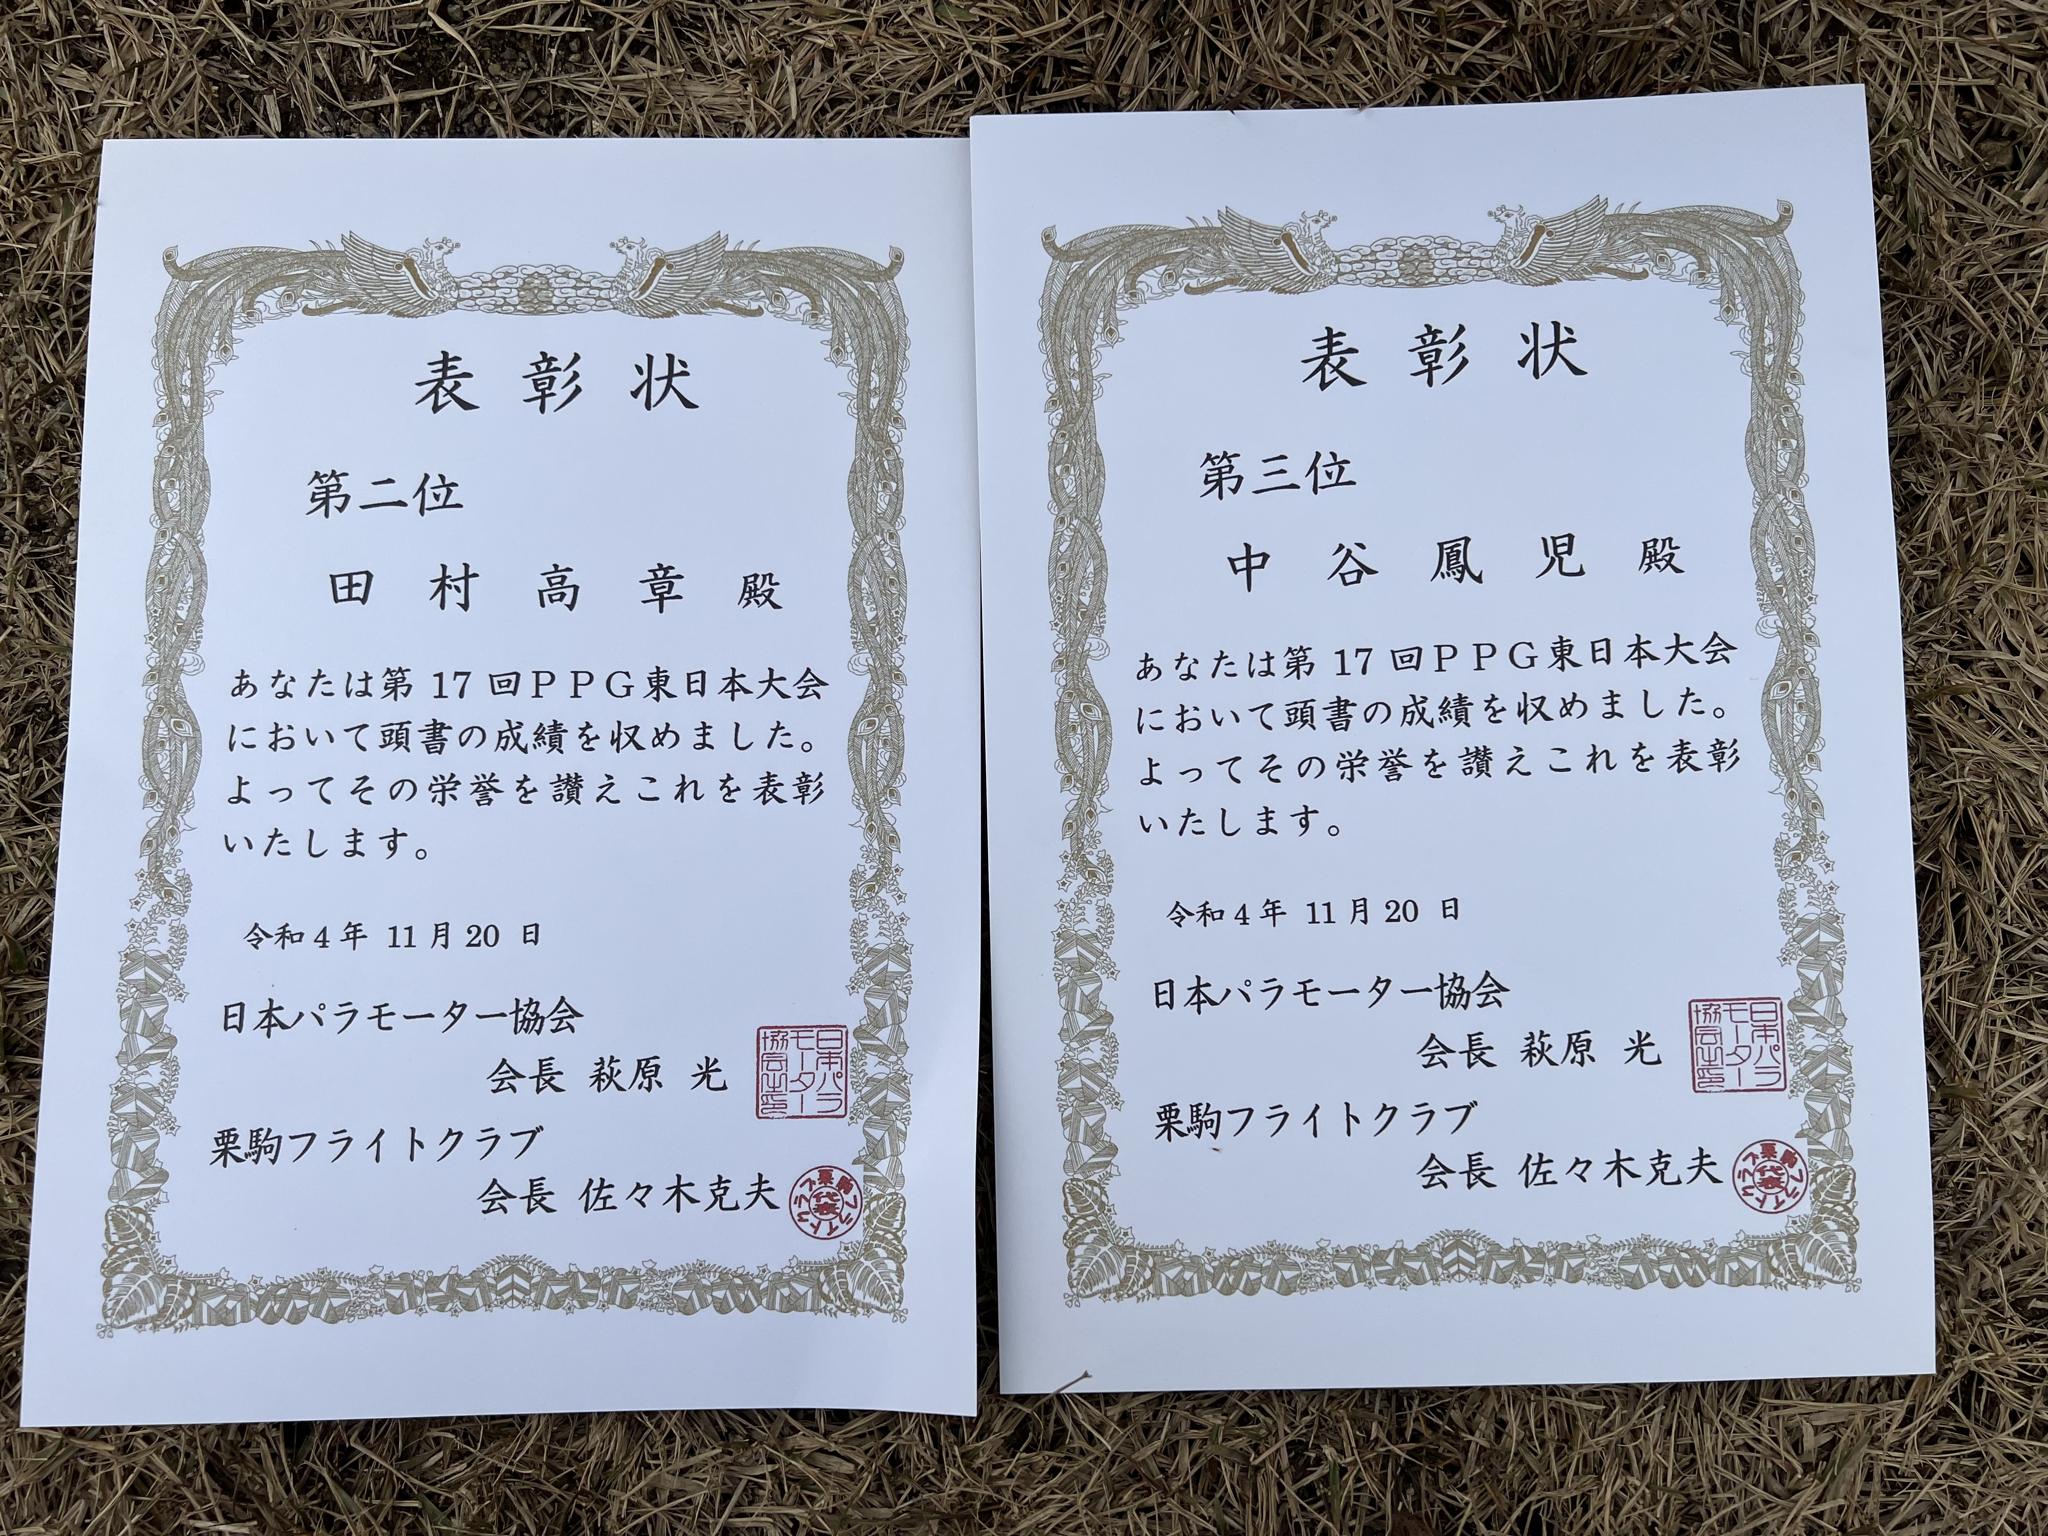 表彰状
第二位
田村高章殿
あなたは第17回PPG東日本大会
において頭書の成績を収めました。
よってその栄誉を讃えこれを表彰
いたします。
令和4年 11月20 日
日本パラモーター協会
会長 萩原 光
日本パラ
モーター
協会之印
栗駒フライトクラブ
会長 佐々木克夫
栗駒フライトクラブ
代表
表彰状
第三位
中谷鳳児殿
あなたは第17回PPG東日本大会
において頭書の成績を収めました。
よってその栄誉を讃えこれを表彰
いたします。
令和4年 11月20 日
日本パラモーター協会
会長 萩原 光
日本パラ
モーター
協会之印
栗駒フライトクラブ
会長 佐々木克夫
栗駒フライトクラブ
代表